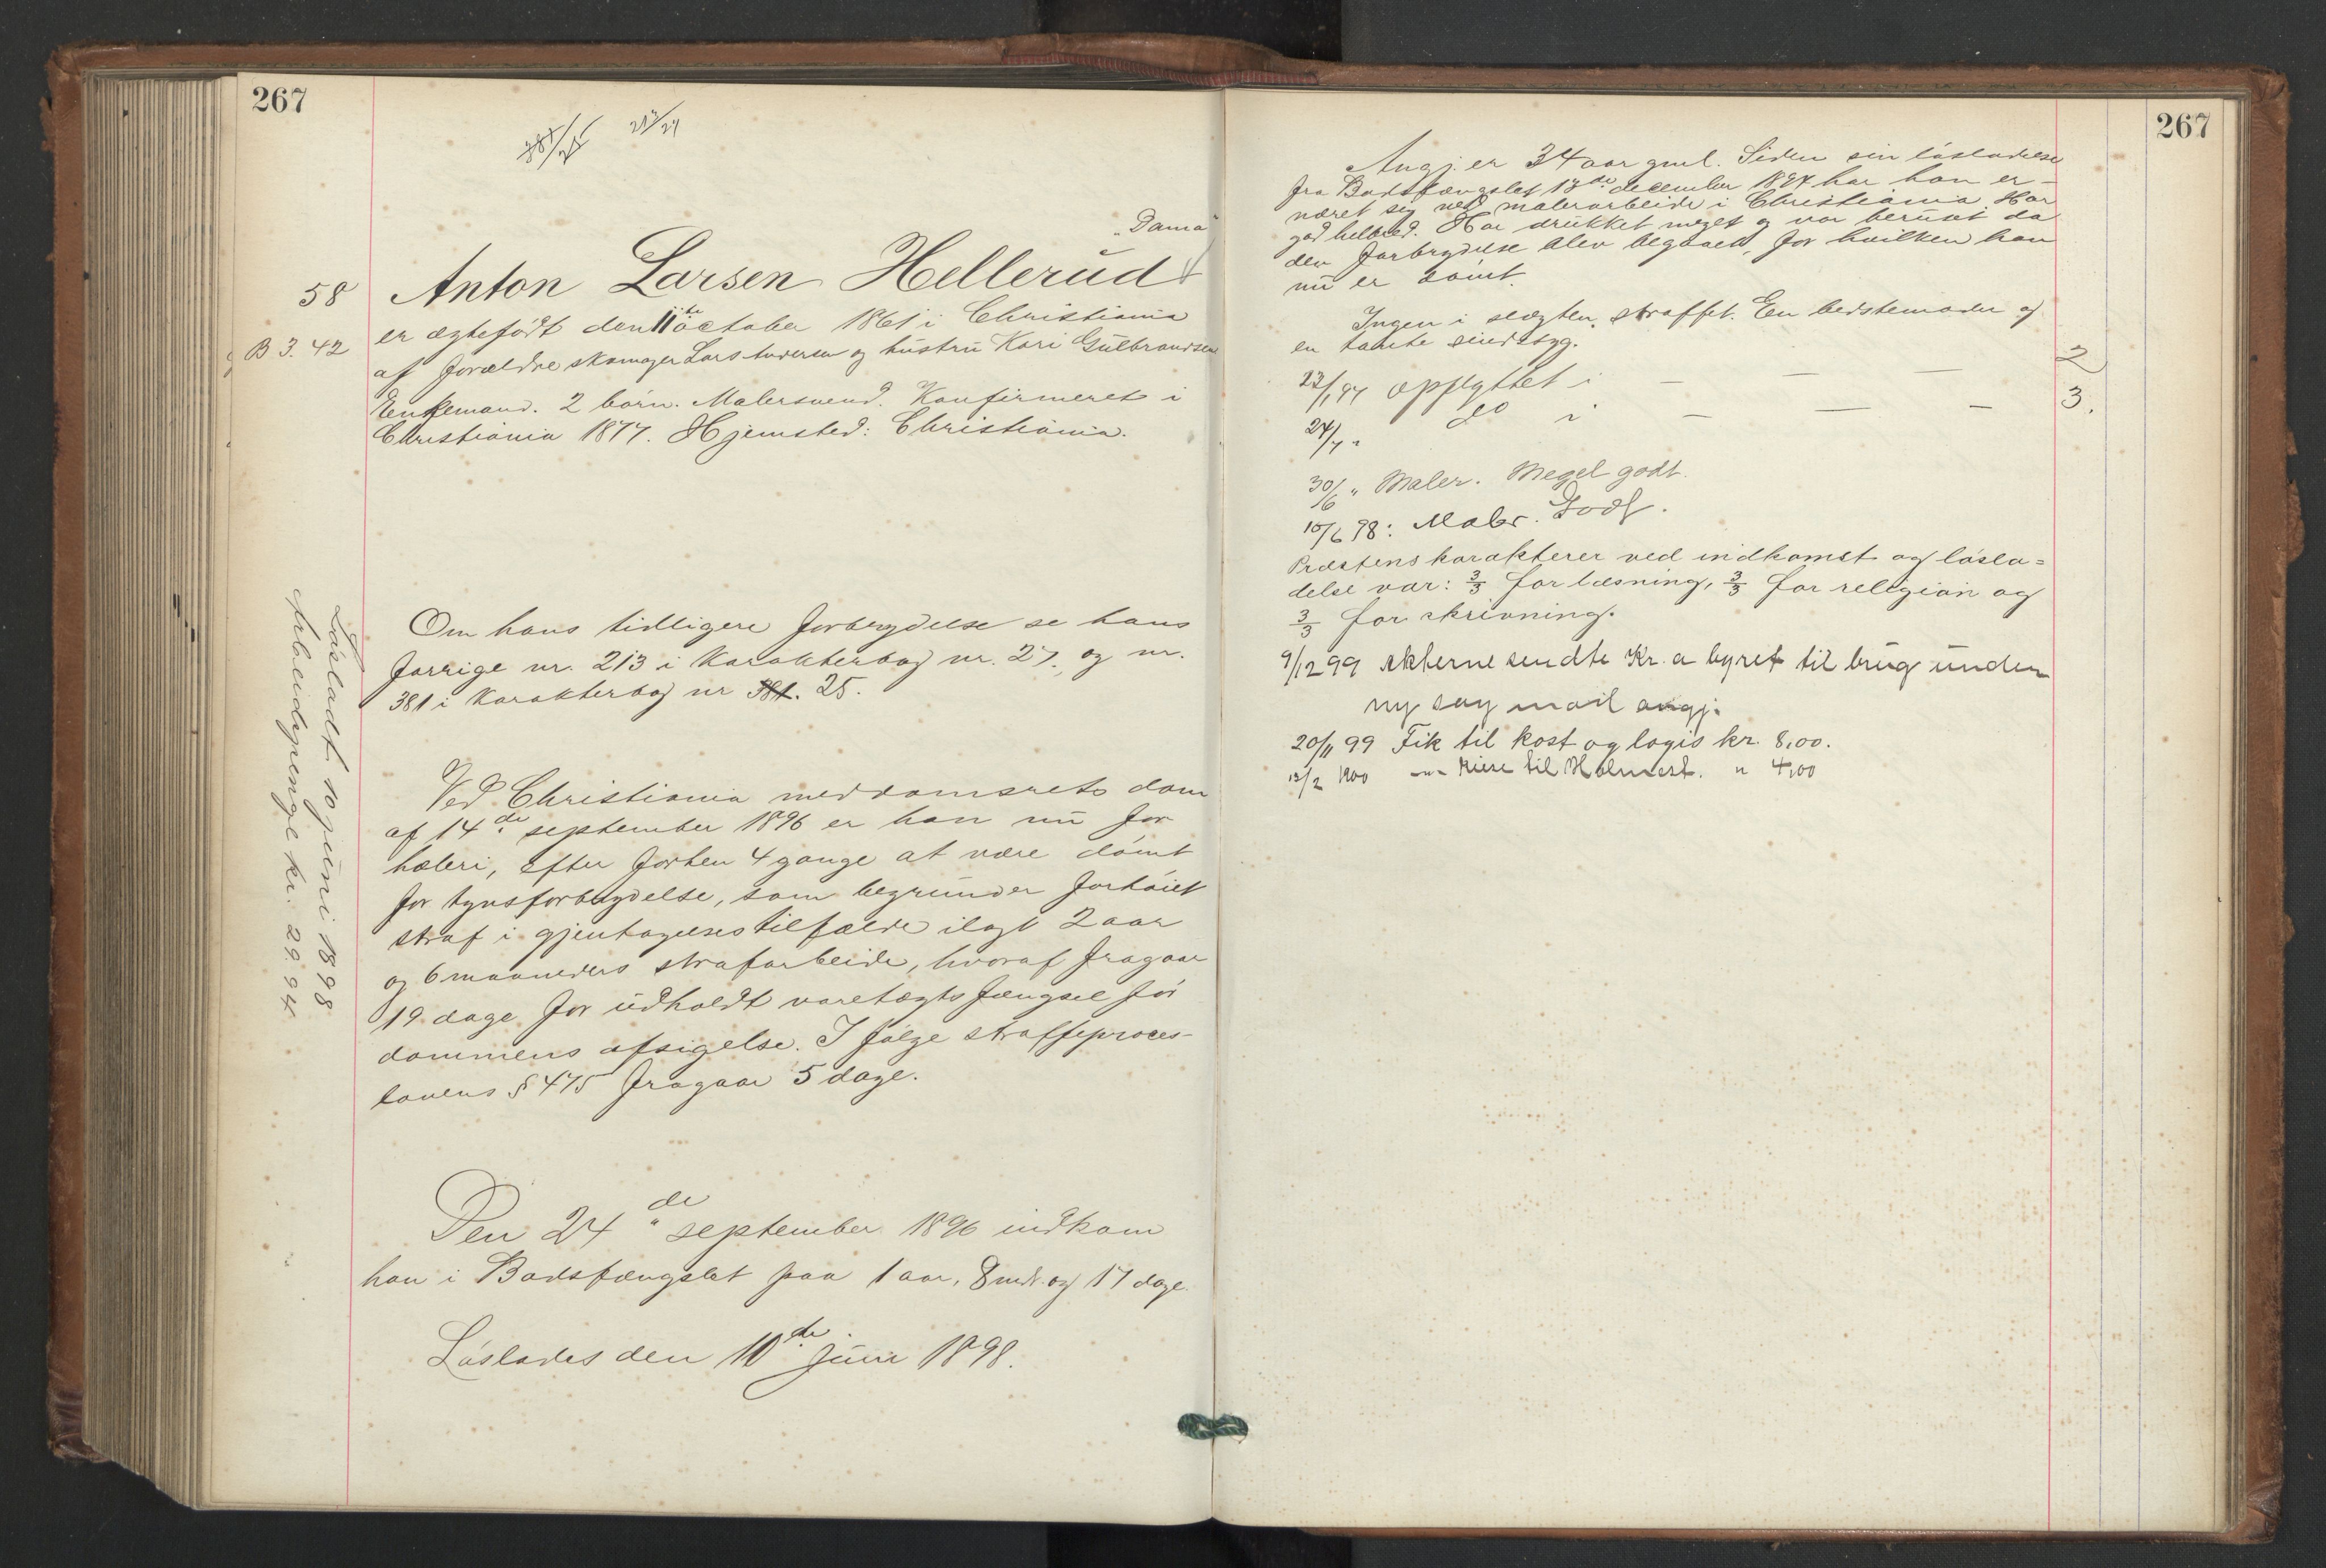 267
213/27
"Dama"
58 Anton Larsen Hellerud
er ægtefødt den 11te october 1861 i Christiania
B 3. 42
af forældre skomager Lars Iversen og hustru Kari Gulbrandsen
Enkemand. 2 børn. Malersvend. Konfirmeret i
Christiania 1877. Hjemsted: Christiania.
Om hans tidligere forbrydelse se hans
forrige nr. 213 i Karakterbog nr. 27, og nr.
381 i Karakterbog nr 381. 25.
Ved Christiania meddomsrets dom
af 14de september 1896 er han nu for
hæleri, efter forhen 4 gange at være dømt
for tyvsforbrydelse, som begrunder forhøiet
straf i gjentagelsestilfælde ilagt 2 aar
og 6 maaneders strafarbeide, hvoraf fragaar
19 dage for udholdt varetægtsfængsel før
dommens afsigelse. I følge straffeproces-
lovens § 475 fragaar 5 dage.
Den 24de september 1896 indkom
han i Bodsfængslet paa 1 aar, 8 mdr. og 17 dage.
Løslades den 10de juni 1898.
Løsladt 10 juni 1898
Arbeidspenge kr. 29.94
267
Angj. er 34 aar gml. Siden sin løsladelse
fra Bodsfængslet 13de december 1894 har han er-
næret sig ved malerarbeide i Christiania. Har
god helbred. Har drukket meget og var beruset da
den forbrydelse blev begaaet, for hvilken han
nu er dømt.
Ingen i slægten straffet. En bedstemoder og
en tante sindssyg.
23/1 97 opflyttet i — — — 2
24/7 " do i — — — 3.
30/6 " Maler. Meget godt.
10/6 98: Maler. Godt.
Præstens karakterer ved indkomst og løsla-
delse var: 3/3 for læsning, 3/3 for religion og
3/3 for skrivning.
9/12 99 akterne sendte Kr.a byret til brug under
ny sag mod angj.
20/11 99 Fik til kost og logis kr. 8,00.
13/2 1900 —"— Reise til Holmest. " 4,00